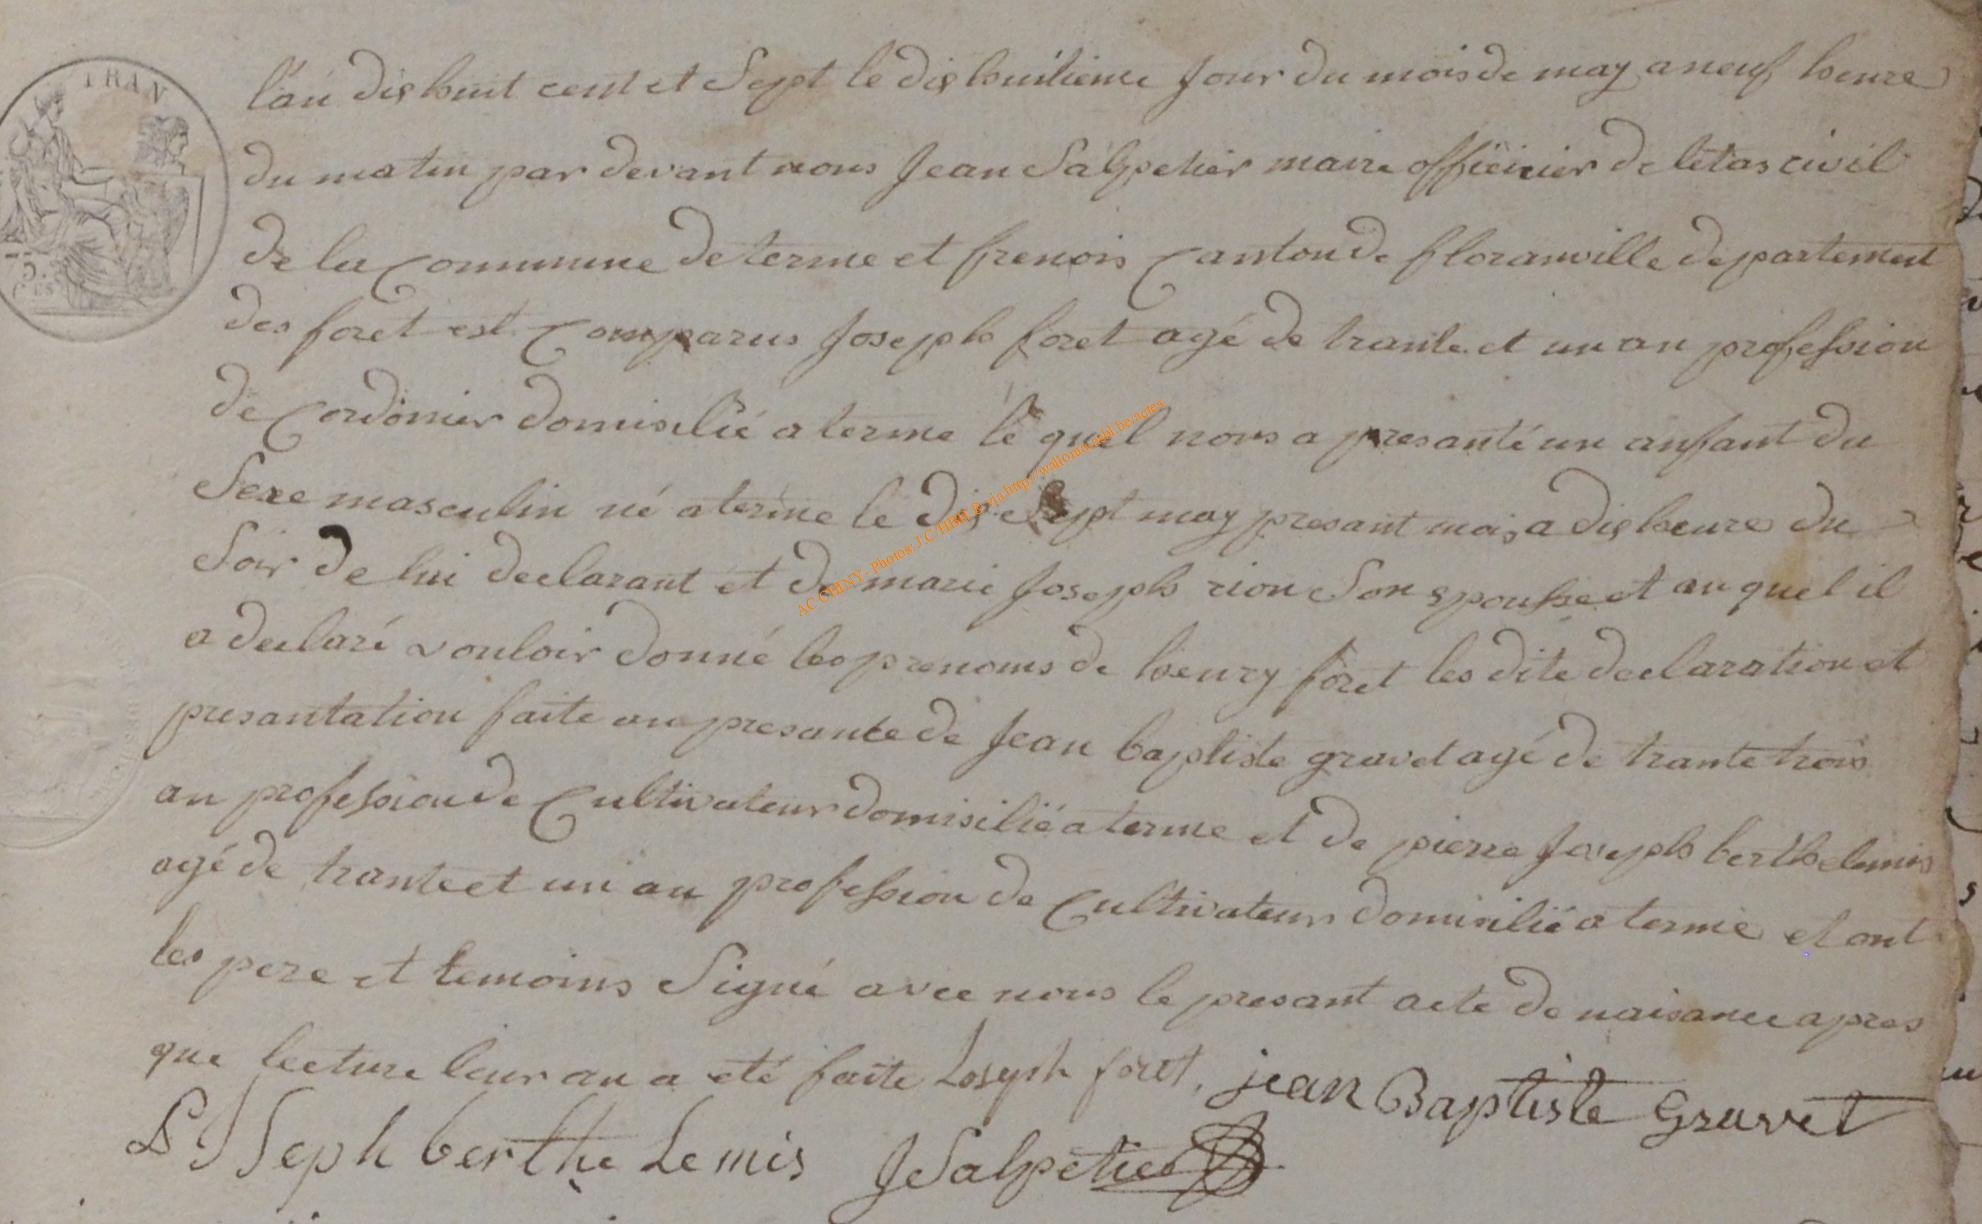 TRAN
75.
CES
l'an dix huit cent et Sept le dix huitieme Jour du mois de may a neuf heure
du matin par devant nous Jean Salpetier maire officier de letas civil
de la Commune de terme et frenois Canton de floranville departement
des foret est Comparus Joseph foret agé de trante et un an profession
de Cordonier domisilié a terme le quel nous a presanté un anfant du
Sexe masculin né a terme le dix Sept may presant mois a dix heure du
Soir de lui declarant et de marie Joseph rion Son epousse et au quel il
a declaré vouloir donné les prenoms de henry foret les dite declaration et
presantation faite an presante de Jean baptiste gravet agé de trante trois
an profession de Cultivateur domisilié a terme et de pierre Joseph berthelemis
agé de trante et un an profession de Cultivateur domisilié a terme et ont
les pere et temoins Signé avec nous le presant acte de naisance apres
que lecture leur an a eté faite Loseph foret, jean Baptiste Gravet
berthe Lemis JSalpetier
AC CHINY- Photos J.C HBILR via http://wallonia.asbl.be/Actes